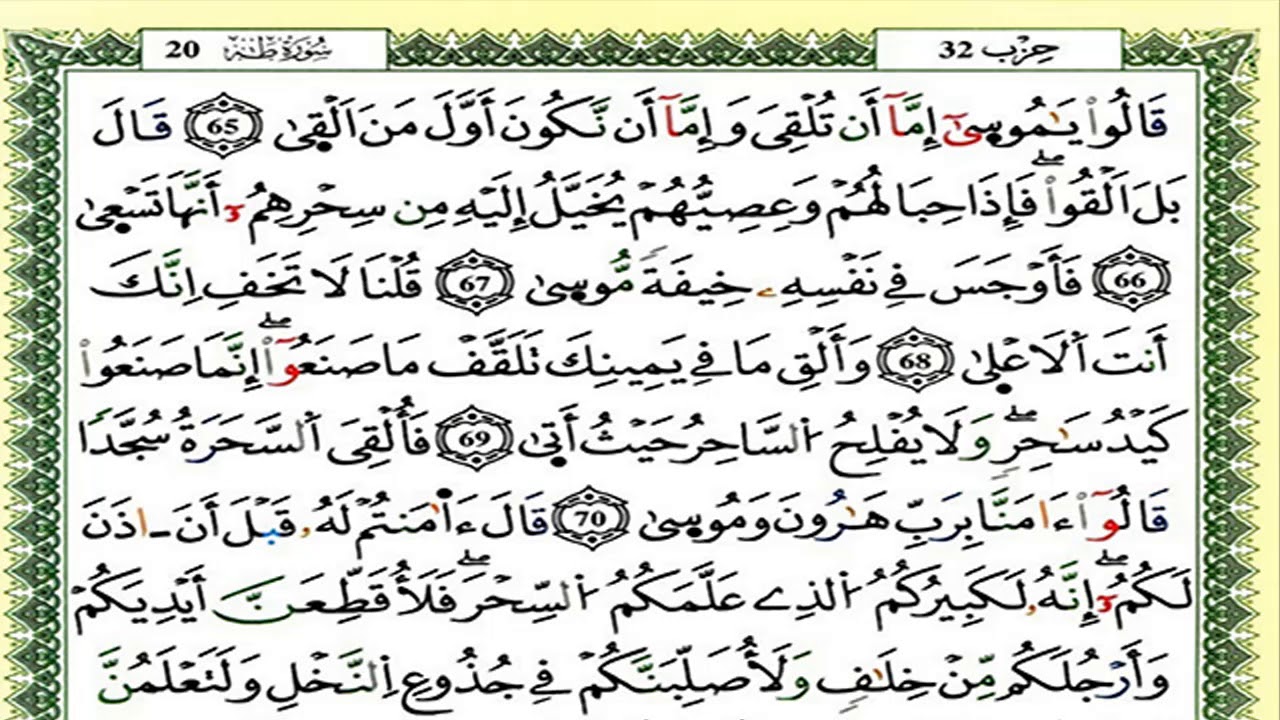 سُورَةُ طَهَ 20
حِزْب 32
قَالُواْ يَـٰمُوسِيٰٓ إِمَّآ أَن تُلْقِيَ وَإِمَّآ أَن نَّكُونَ أَوَّلَ مَنَ اَلْقِيٰ 65 قَالَ
بَلَ اَلْقُواْۖ فَإِذَا حِبَالُهُمْ وَعِصِيُّهُمْ يُخَيَّلُ إِلَيْهِ مِن سِحْرِهِمُۥٓ أَنَّهَا تَسْعِيٰ
66 فَأَوْجَسَ فِي نَفْسِهِۦ خِيفَةً مُّوسِيٰ 67 قُلْنَا لَا تَخَفِ اِنَّكَ
أَنتَ اَلَاعْلِيٰ 68 وَأَلْقِ مَا فِي يَمِينِكَ تَلَقَّفْ مَا صَنَعُوٓاْۖ إِنَّمَا صَنَعُواْ
كَيْدُ سَـٰحِرٖۖ وَلَا يُفْلِحُ اُلسَّاحِرُ حَيْثُ أَتِيٰ 69 فَأُلْقِيَ اَلسَّحَرَةُ سُجَّدًا
قَالُوٓاْ ءَامَنَّا بِرَبِّ هَـٰرُونَ وَمُوسِيٰ 70 قَالَ ءَاٰ۬مَنتُمْ لَهُۥ قَبْلَ أَنَ ـ اذَنَ
لَكُمُۥٓۖ إِنَّهُۥ لَكَبِيرُكُمُ اُلذِے عَلَّمَكُمُ اُلسِّحْرَۖ فَلَأُقَطِّعَنَّ أَيْدِيَكُمْ
وَأَرْجُلَكُم مِّنْ خِلَـٰفٖ وَلَأُصَلِّبَنَّكُمْ فِي جُذُوعِ اِلنَّخْلِ وَلَتَعْلَمُنَّ